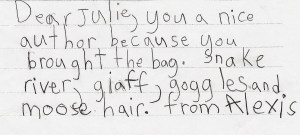 Dear Julie, you a nice
author because you
brought the bag. Snake
river, giaff, goggles and
moose hair. from Alexis